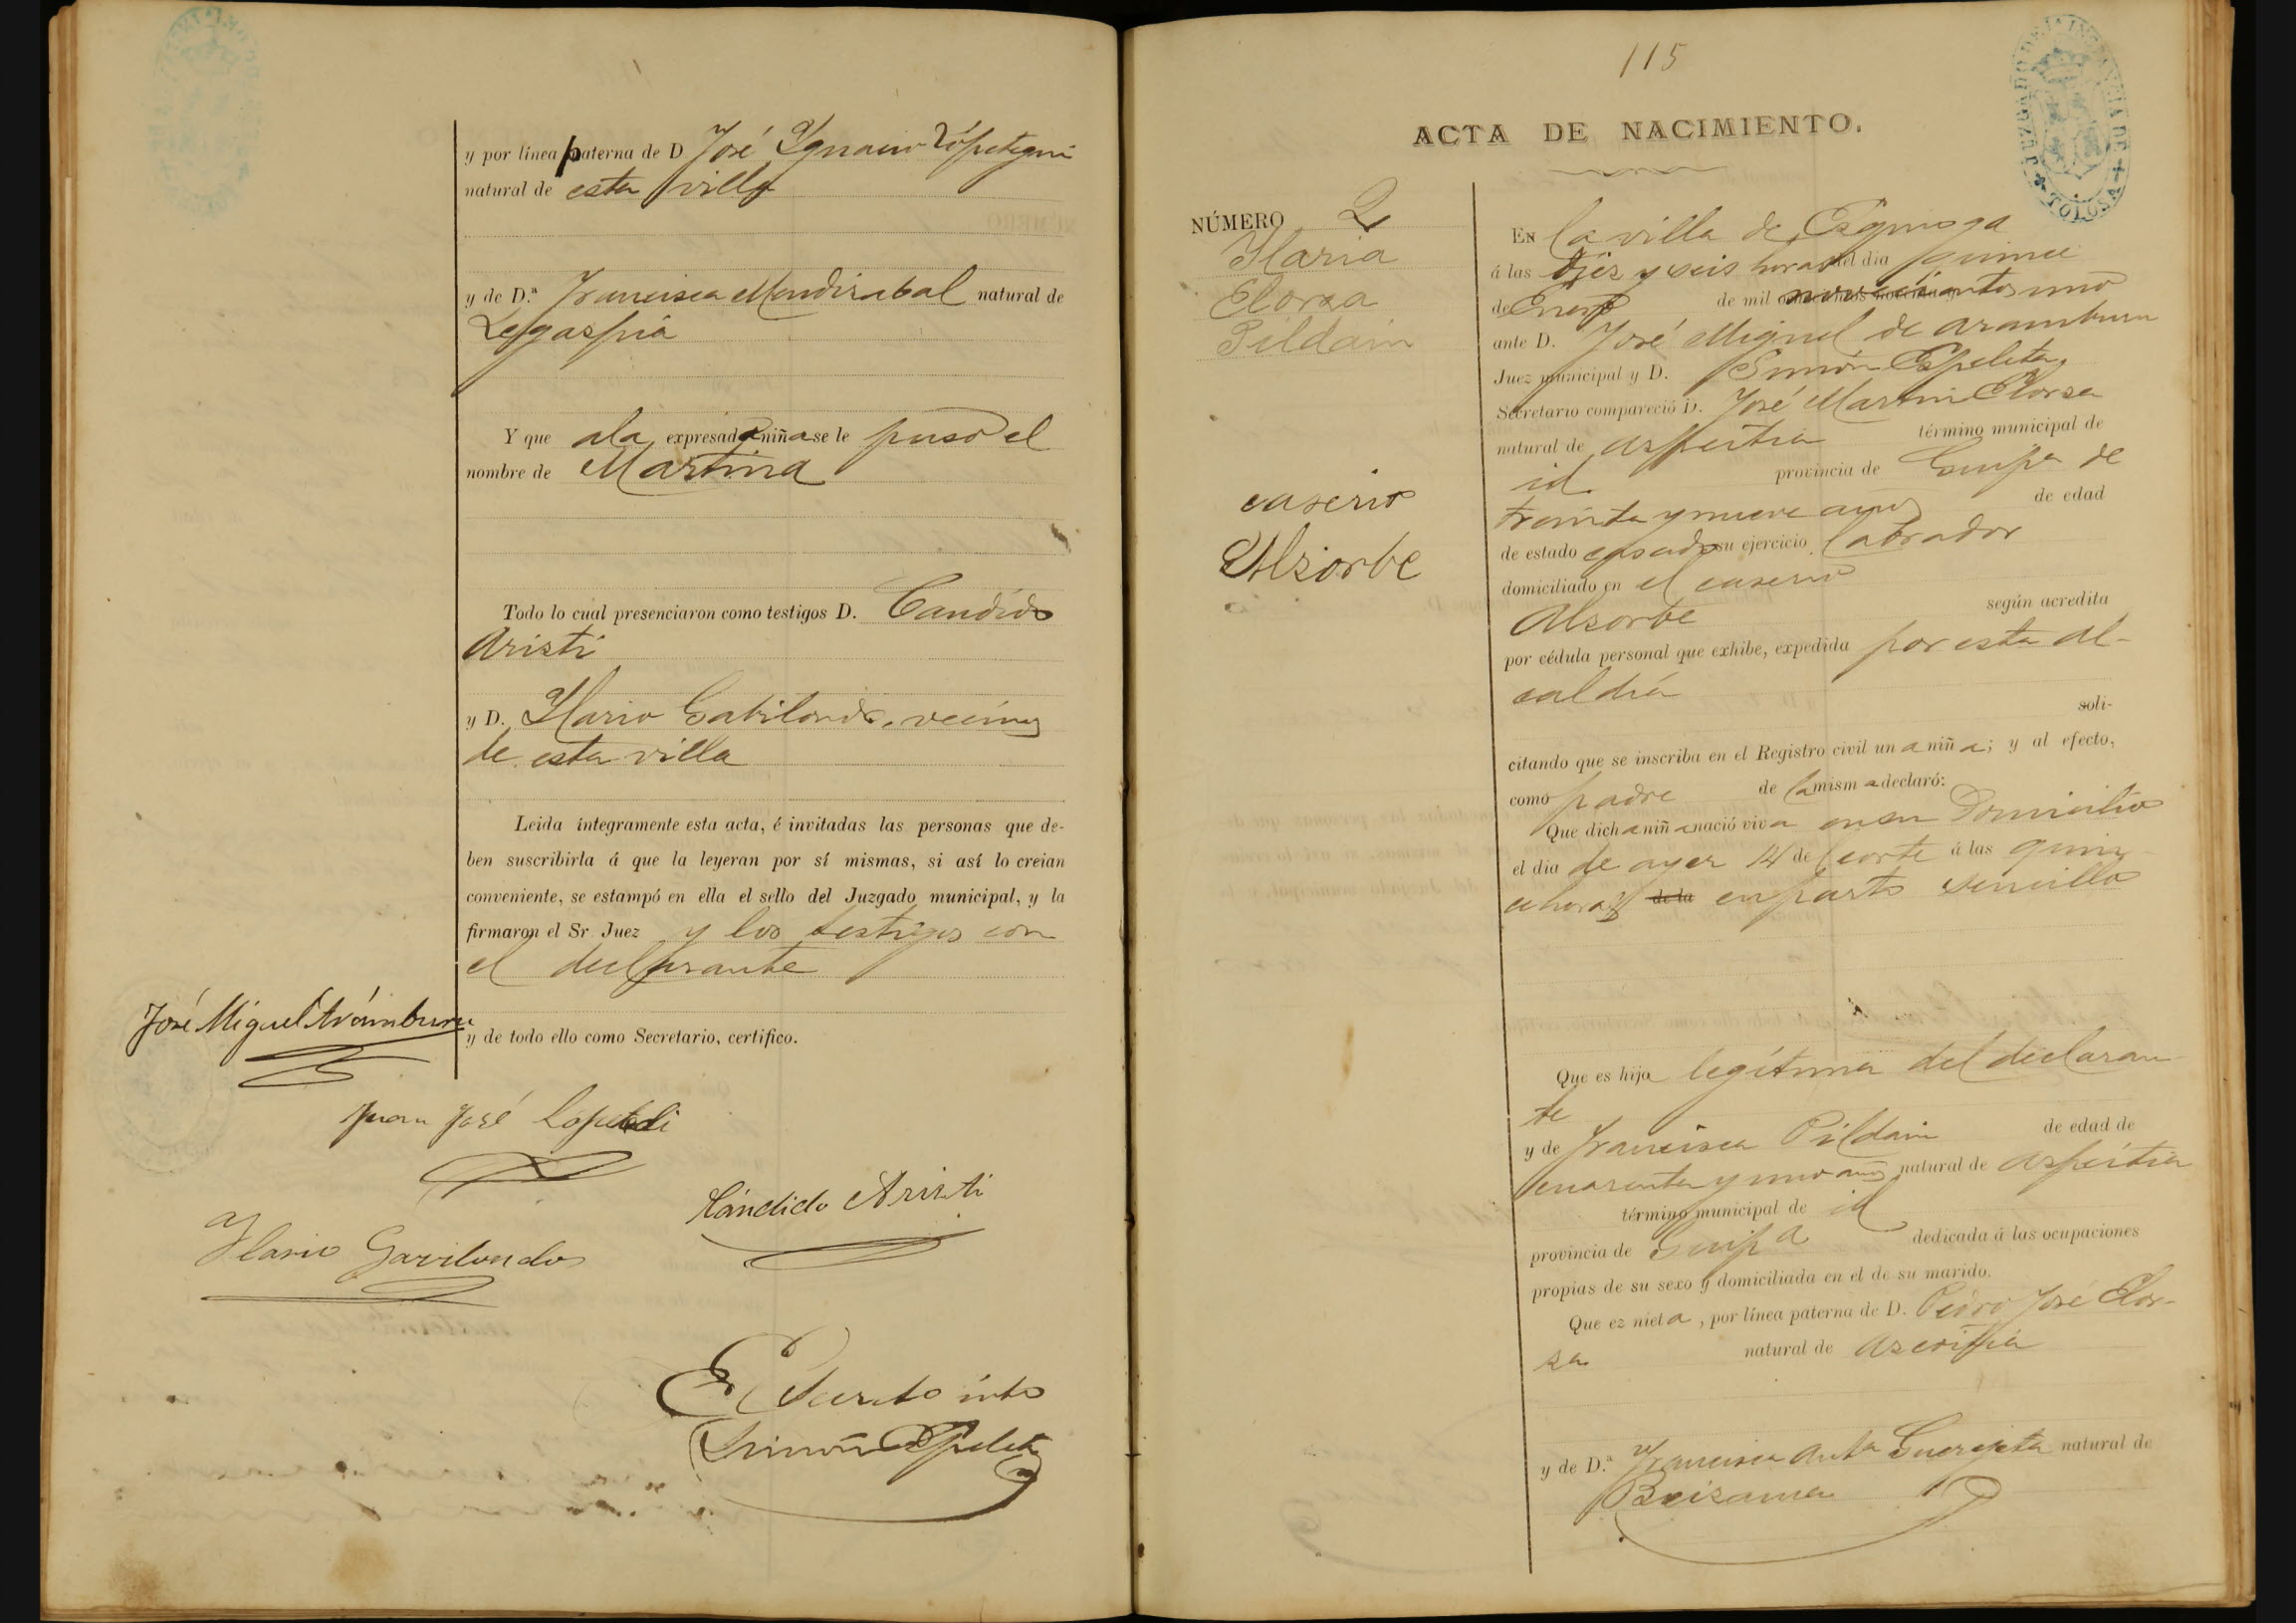 y por línea paterna de D José Ygnacio Lópetegui
natural de esta villa
y de D.ª Francisca Mendizabal natural de
Legaspia
Y que a la expresada niña se le puso el
nombre de Martina
Todo lo cual presenciaron como testigos D. Candido
Aristi
y D. Ylario Gabilondo, vecinos
de esta villa
Leida íntegramente esta acta, é invitadas las personas que de-
ben suscribirla á que la leyeran por sí mismas, si así lo creian
conveniente, se estampó en ella el sello del Juzgado municipal, y la
firmaron el Sr. Juez y los testigos con
el declarante
José Miguel Aramburu
y de todo ello como Secretario, certifico.
Juan José
Cándido Aristi
Ylario Gavilondo
El Secreto into
Simón Espeleta
115
ACTA DE NACIMIENTO.
JUZGADO DE 1.ª INSTANCIA DE TOLOSA
NÚMERO 2
Ylaria
Elorza
Pildain
caserio
Alzorbe
En la villa de Ezquioga
á las diez y seis horas del dia quince
de Enero de mil novecientos uno
ante D. José Miguel de Aramburu
Juez municipal y D. Simón Espeleta,
Secretario compareció D. José Martin Elorza
natural de Azpeitia término municipal de
id. provincia de Guipa de
treinta y nueve años de edad
de estado casado su ejercicio labrador
domiciliado en el caserio
Alzorbe según acredita
por cédula personal que exhibe, expedida por esta Al-
caldía
soli-
citando que se inscriba en el Registro civil una niña; y al efecto,
como padre de la misma declaró:
Que dicha niña nació viva en su Domicilio
el dia de ayer 14 del corte á las quin-
ce horas de la en parto sencillo
Que es hija legítima del declaran-
te
y de Francisca Pildain de edad de
cuarenta y uno años natural de Azpeitia
término municipal de id
provincia de Guipa dedicada á las ocupaciones
propias de su sexo y domiciliada en el de su marido.
Que es nieta, por línea paterna de D. Pedro José Elor-
za natural de Azcoitia
y de D.ª Francisca Anta Guerejeta natural de
Beizama